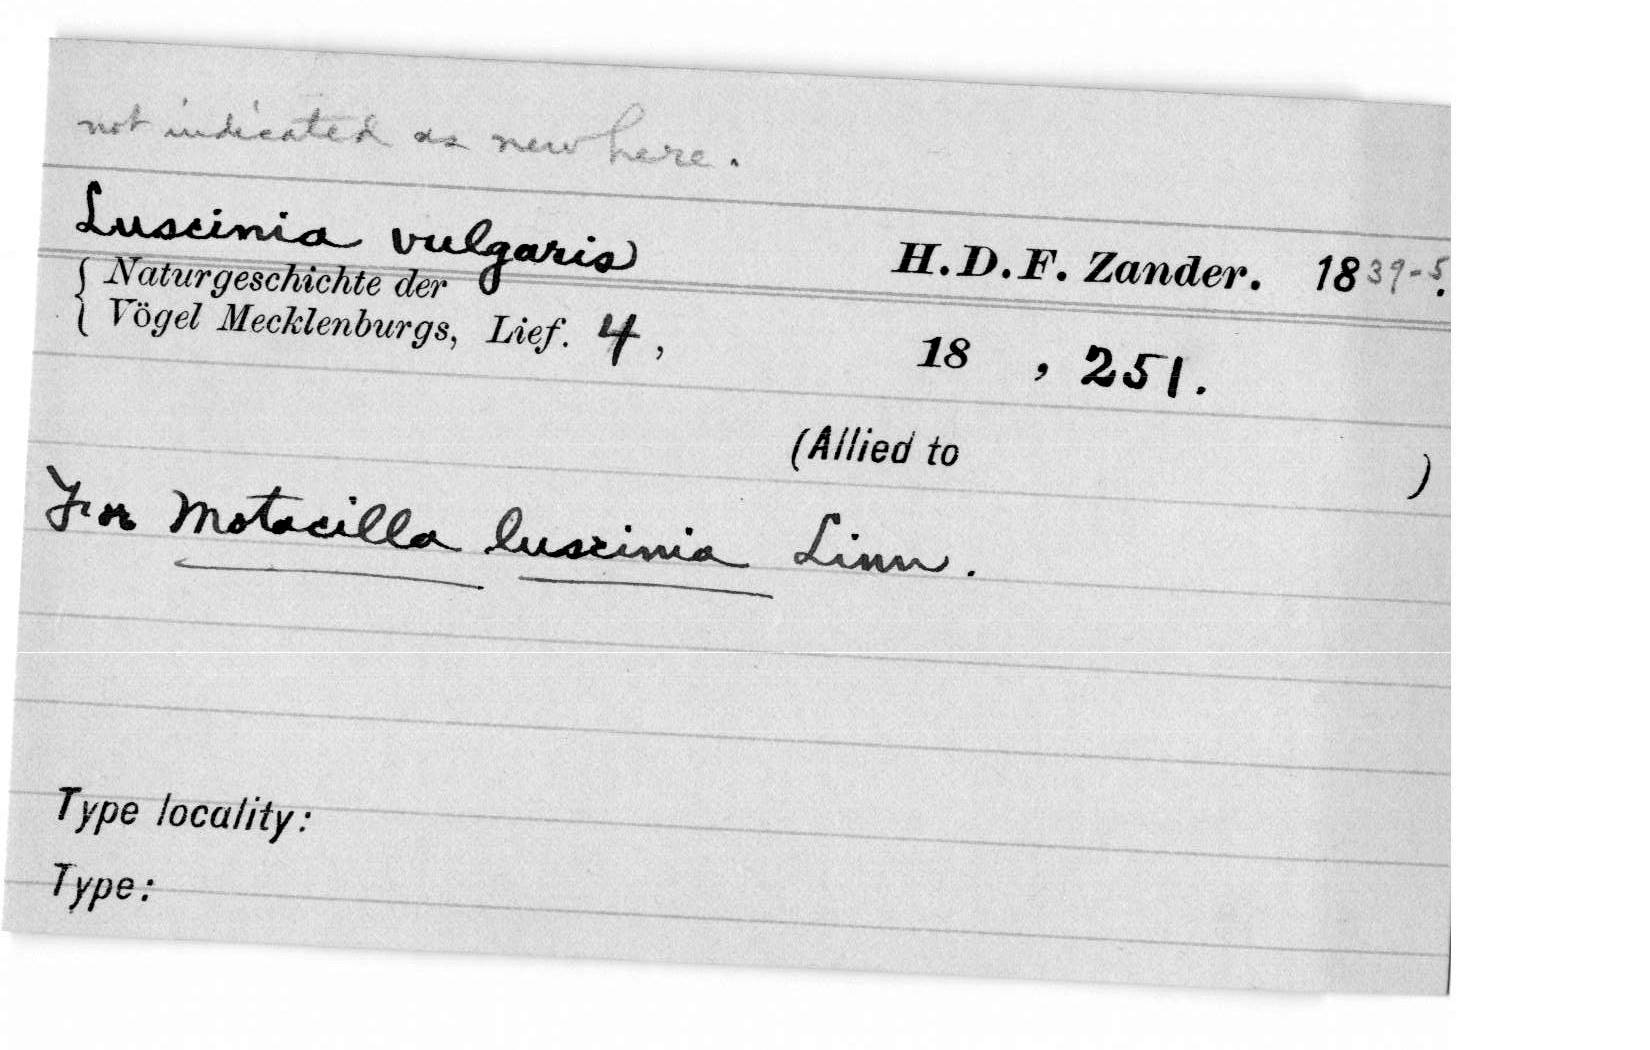 not indicated as new here.
Luscinia vulgaris H.D.F. Zander. 1839-5.
Naturgeschichte der
Vögel Mecklenburgs, Lief. 4, 18 , 251.
(Allied to )
For Motacilla luscinia Linn.
Type locality:
Type: